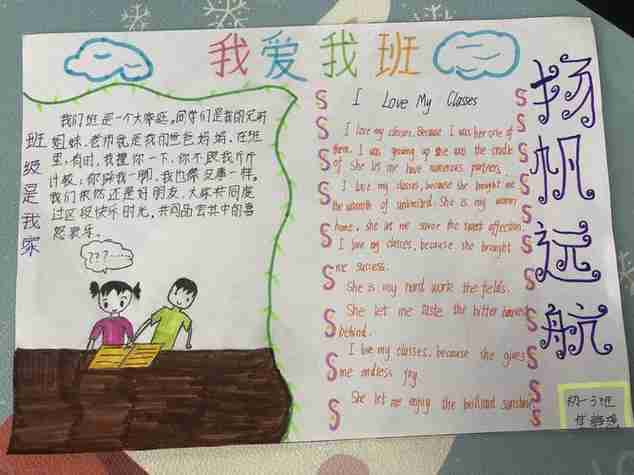 我爱我班
扬帆远航
班级是我家
我们班是一个大家庭。同学们是我的兄弟
姐妹,老师就是我们的爸爸妈妈,在班
里,有时,我撞你一下,你不跟我斤斤
计较;你踩我一脚,我也像没事一样。
我们依然还是好朋友,大家共同度
过这段快乐时光,共同品尝其中的喜
怒哀乐。
???……
I Love My Classes
I love my classes, Because I was her one of
them. I was growing up she was the cradle
of She let me have numerous partners.
I love my classes, because she brought me
the warmth of unlimited. She is my warm
home, she let me savor the sweet affection.
I love my classes, because she brought
me success.
She is my hard work the fields.
She let me taste the bitter
behind.
I love my classes, because she gives
me endless joy.
She let me enjoy the brilliant sunshine
初一3班